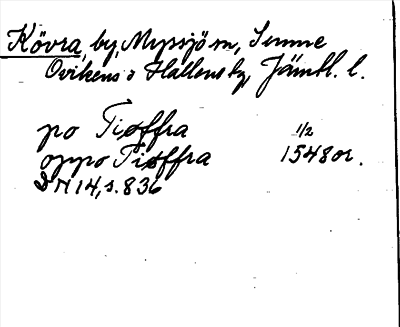 Kövra, by, Myssjö sn, Sunne
Ovikens o Hallens tg, Jämtl. l.
po Tiøffra 1/2
oppo Tiøffra 1548 or.
DN 14, s. 836